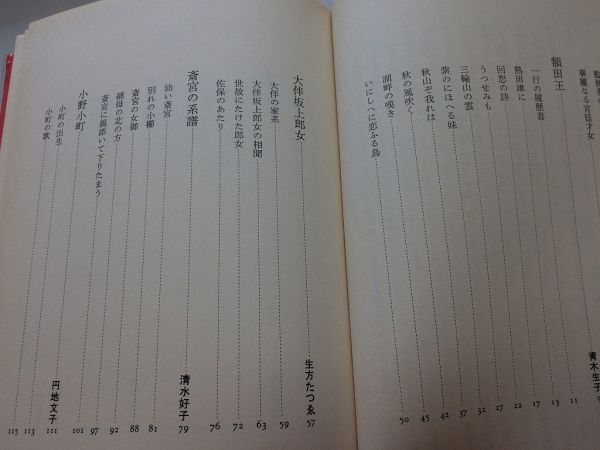 華麗なる宮廷才女
額田王 青木生子 9
一行の履歴書 11
熟田津に 13
回想の詩 17
うつせみも 22
三輪山の雲 27
紫のにほへる妹 32
秋山ぞ我れは 37
秋の風吹く 42
湖畔の嘆き 45
いにしへに恋ふる鳥 50
大伴坂上郎女 生方たつゑ 57
大伴の家系 59
大伴坂上郎女の相聞 63
世故にたけた郎女 72
佐保のあたり 76
斎宮の系譜 清水好子 79
幼い斎宮 81
別れの小櫛 88
斎宮の女御 92
継母の北の方 97
斎宮に親添いて下りたまう 101
小野小町 円地文子 111
小町の出生 113
小町の歌 115